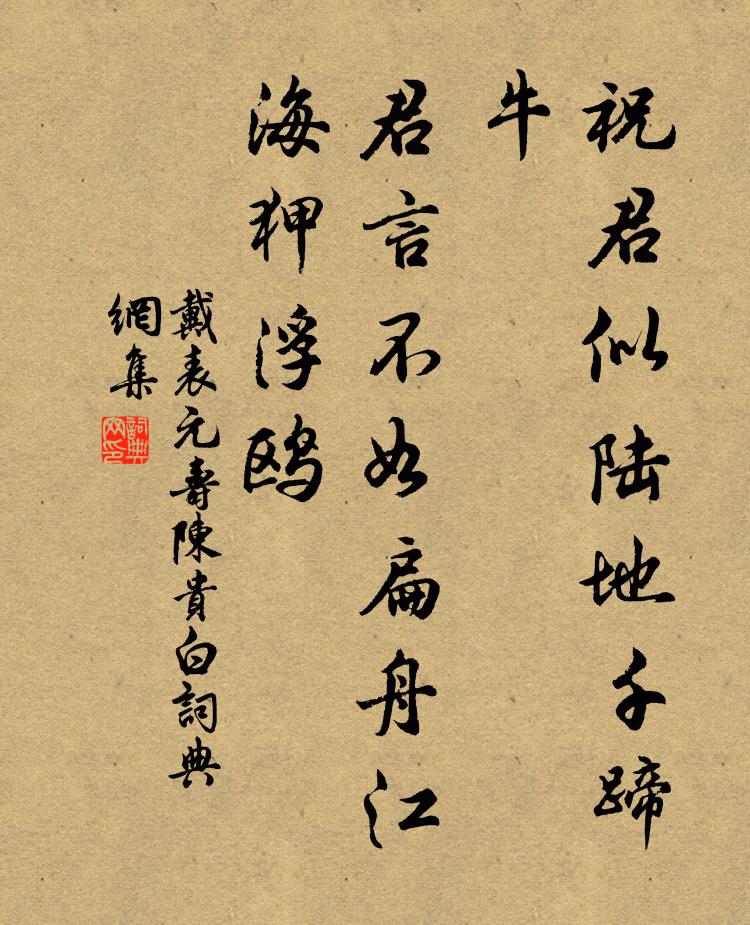 祝君似陆地千蹄
牛
君言不如扁舟江
海狎浮鸥
戴表元壽陳貴白詞典
網集
詞典
网印